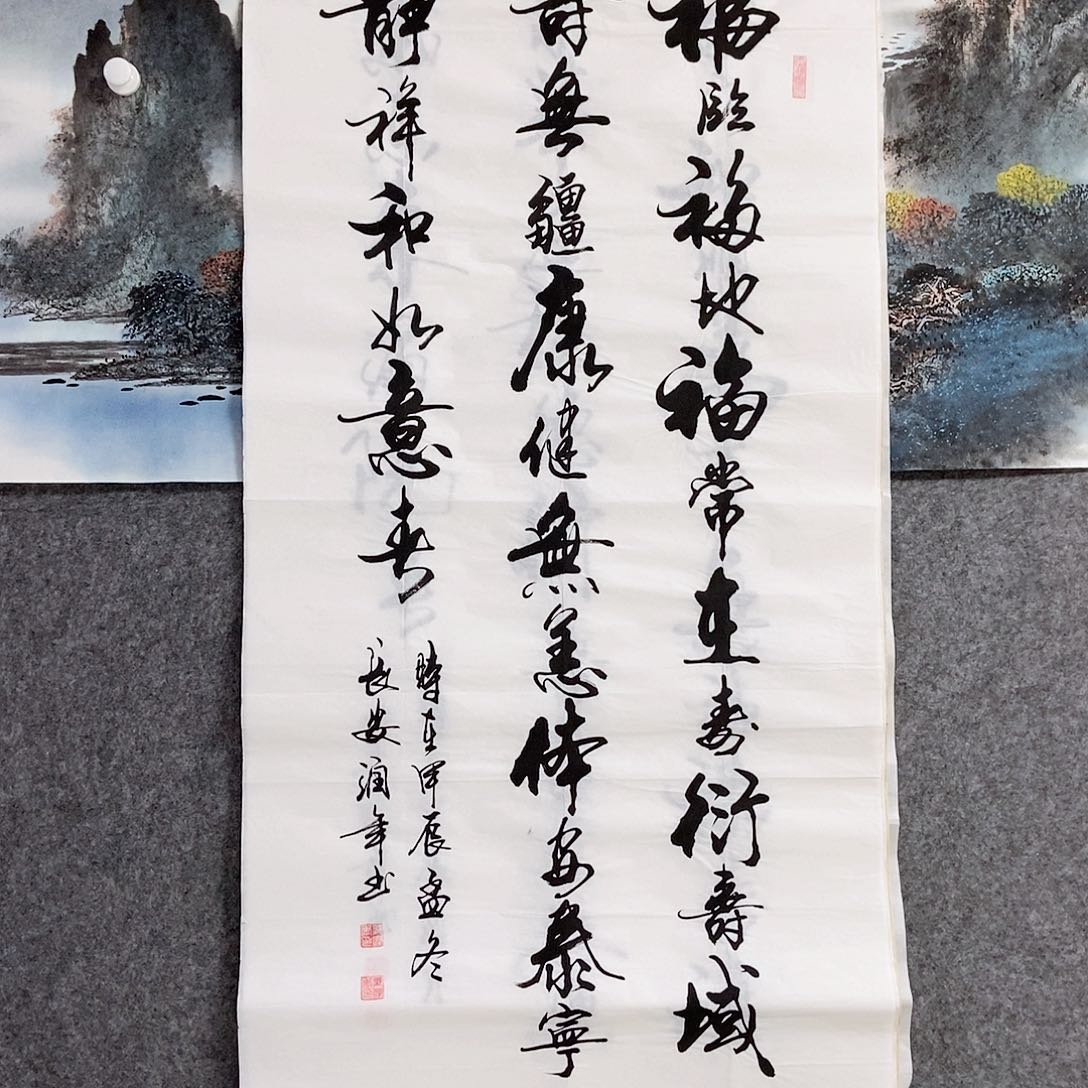 福臨福地福常在寿衍壽域
壽無疆康健無恙体安泰寧
静祥和如意春
時在甲辰孟冬
長安润年书